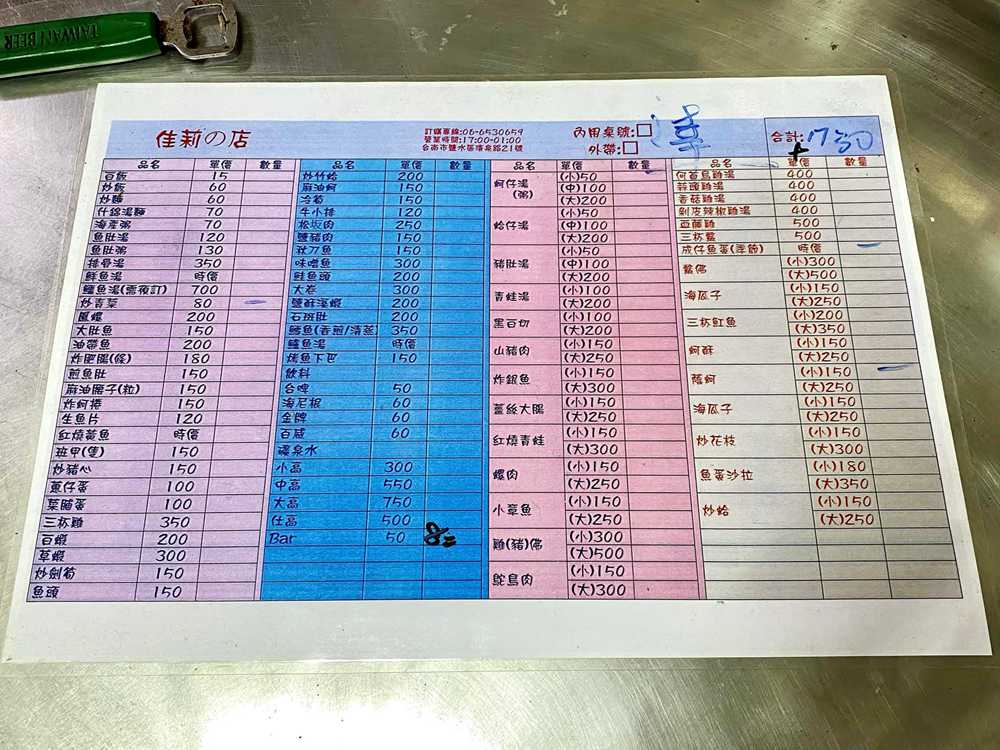 TAIWAN BEER
佳莉の店
訂購專線:06-6530659
營業時間:17:00-01:00
台南市鹽水區橋泉路21號
內用桌號:□
外帶:□
合計: 1730
品名 單價 數量
豆飯 15
炒飯 60
炒麵 60
什錦湯麵 70
海產粥 70
魚肚湯 120
魚肚粥 130
排骨湯 350
鮮魚湯 時價
鱸魚湯(需預訂) 700
炒青菜 80
鳳螺 200
大肚魚 150
油帶魚 200
炸肥腸(條) 180
煎魚肚 150
麻油腰子(粒) 150
炸蚵捲 150
生魚片 120
紅燒黃魚 時價
班甲(隻) 150
炒豬心 150
蔥仔蛋 100
菜脯蛋 100
三杯雞 350
白蝦 200
草蝦 300
炒劍筍 150
魚頭 150
品名 單價 數量
炒竹蛤 200
麻油蚵 150
冷筍 150
牛小排 120
松坂肉 250
鹽豬肉 150
秋刀魚 150
味噌魚 300
鮭魚頭 200
大卷 300
鹽酥溪蝦 200
石斑肚 200
鱈魚(香煎/清蒸) 350
鱷魚湯 時價
烤魚下巴 150
飲料
台啤 50
海尼根 60
金牌 60
百威 60
礦泉水
小高 300
中高 550
大高 750
仕高 500
Bar 50
品名 單價 數量
蚵仔湯(粥) (小)50
(中)100
(大)200
蛤仔湯 (小)50
(中)100
(大)200
豬肚湯 (小)50
(中)100
(大)200
青蛙湯 (小)100
(大)200
黑白切 (小)100
(大)200
山豬肉 (小)150
(大)250
炸銀魚 (小)150
(大)300
薑絲大腸 (小)150
(大)250
紅燒青蛙 (小)150
(大)300
螺肉 (小)150
(大)250
小章魚 (小)150
(大)250
雞(豬)佛 (小)300
(大)500
鴕鳥肉 (小)150
(大)300
品名 單價 數量
何首烏雞湯 400
蒜頭雞湯 400
香菇雞湯 400
剝皮辣椒雞湯 400
白蘭雞 500
三杯鱉 500
成仔魚蛋(季節) 時價
鱉佛 (小)300
(大)500
海瓜子 (小)150
(大)250
三杯魟魚 (小)200
(大)350
蚵酥 (小)150
(大)250
蔭蚵 (小)150
(大)250
海瓜子 (小)150
(大)250
炒花枝 (小)150
(大)300
魚蛋沙拉 (小)180
(大)350
炒蛤 (小)150
(大)250